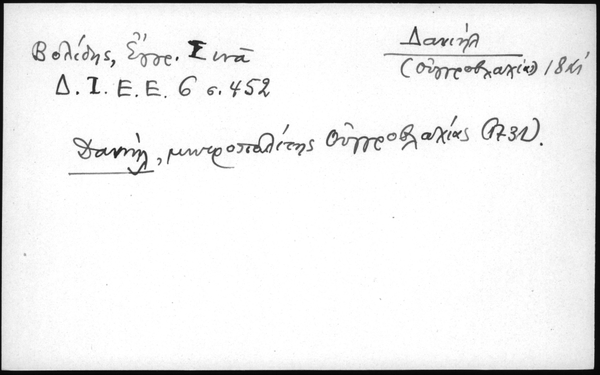 Βολίδης, Ἔγγρ. Σινᾶ
Δ. Ι. Ε. Ε. 6 σ. 452
Δανιήλ
(Οὑγγροβλαχίας) 18
Δανιήλ, μητροπολίτης Οὑγγροβλαχίας (1731).